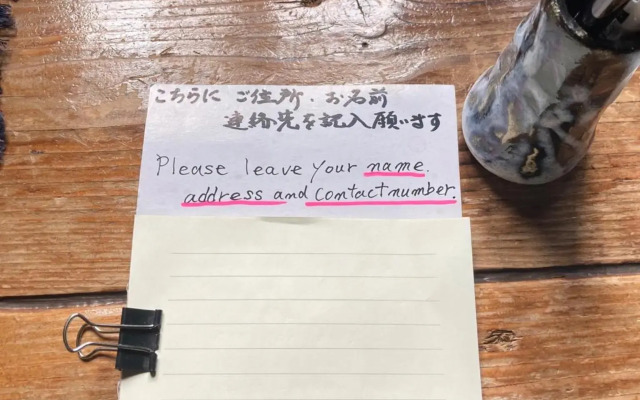 こちらに ご住所・お名前
連絡先を記入願います
Please leave your name.
address and contact number.